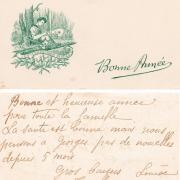 Bonne Année
Bonne et heureuse année
pour toute la famille
La santé est bonne mais nous
pensons a Georges pas de nouvelles
depuis 5 mois
Gros baisers Louise